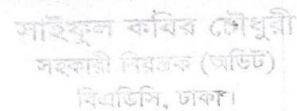 সাইফুল কবির চৌধুরী
সহকারী নিয়ন্ত্রক (অডিট)
বিএডিসি, ঢাকা।